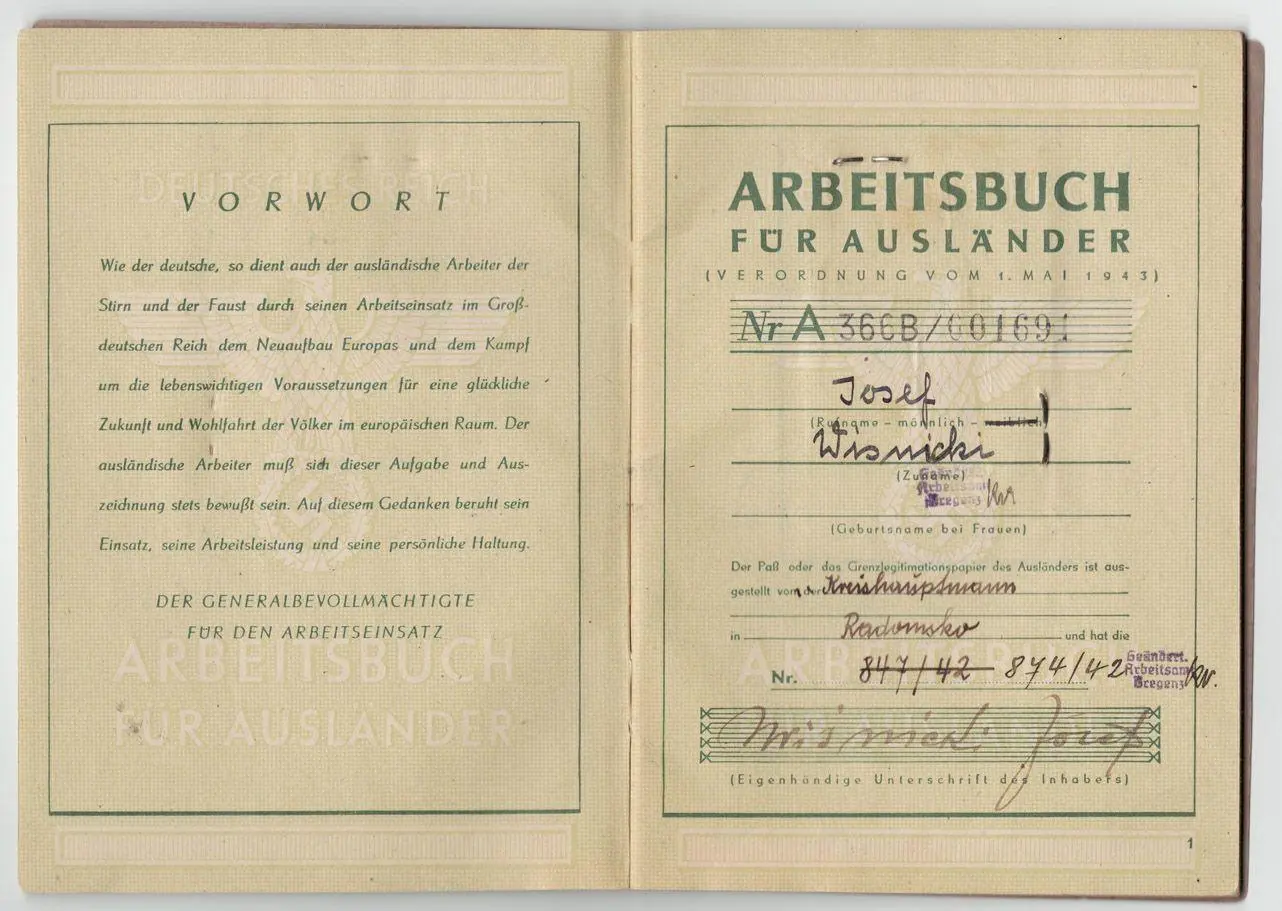 VORWORT
Wie der deutsche, so dient auch der ausländische Arbeiter der
Stirn und der Faust durch seinen Arbeitseinsatz im Groß-
deutschen Reich dem Neuaufbau Europas und dem Kampf
um die lebenswichtigen Voraussetzungen für eine glückliche
Zukunft und Wohlfahrt der Völker im europäischen Raum. Der
ausländische Arbeiter muß sich dieser Aufgabe und Aus-
zeichnung stets bewußt sein. Auf diesem Gedanken beruht sein
Einsatz, seine Arbeitsleistung und seine persönliche Haltung.
DER GENERALBEVOLLMÄCHTIGTE
FÜR DEN ARBEITSEINSATZ
DEUTSCHES REICH
ARBEITSBUCH
FÜR AUSLÄNDER
ARBEITSBUCH
FÜR AUSLÄNDER
(VERORDNUNG VOM 1. MAI 1943)
Nr A 366B/001691
Josef
(Rufname – männlich – weiblich)
Wisnicki
(Zuname)
Geändert.
Arbeitsamt
Bregenz
(Geburtsname bei Frauen)
Der Paß oder das Grenzlegitimationspapier des Ausländers ist aus-
gestellt von der Kreishauptmann
in Radomsko und hat die
Nr. 847/42 874/42
Geändert.
Arbeitsam
Bregenz
Wiśnicki Józef
(Eigenhändige Unterschrift des Inhabers)
1